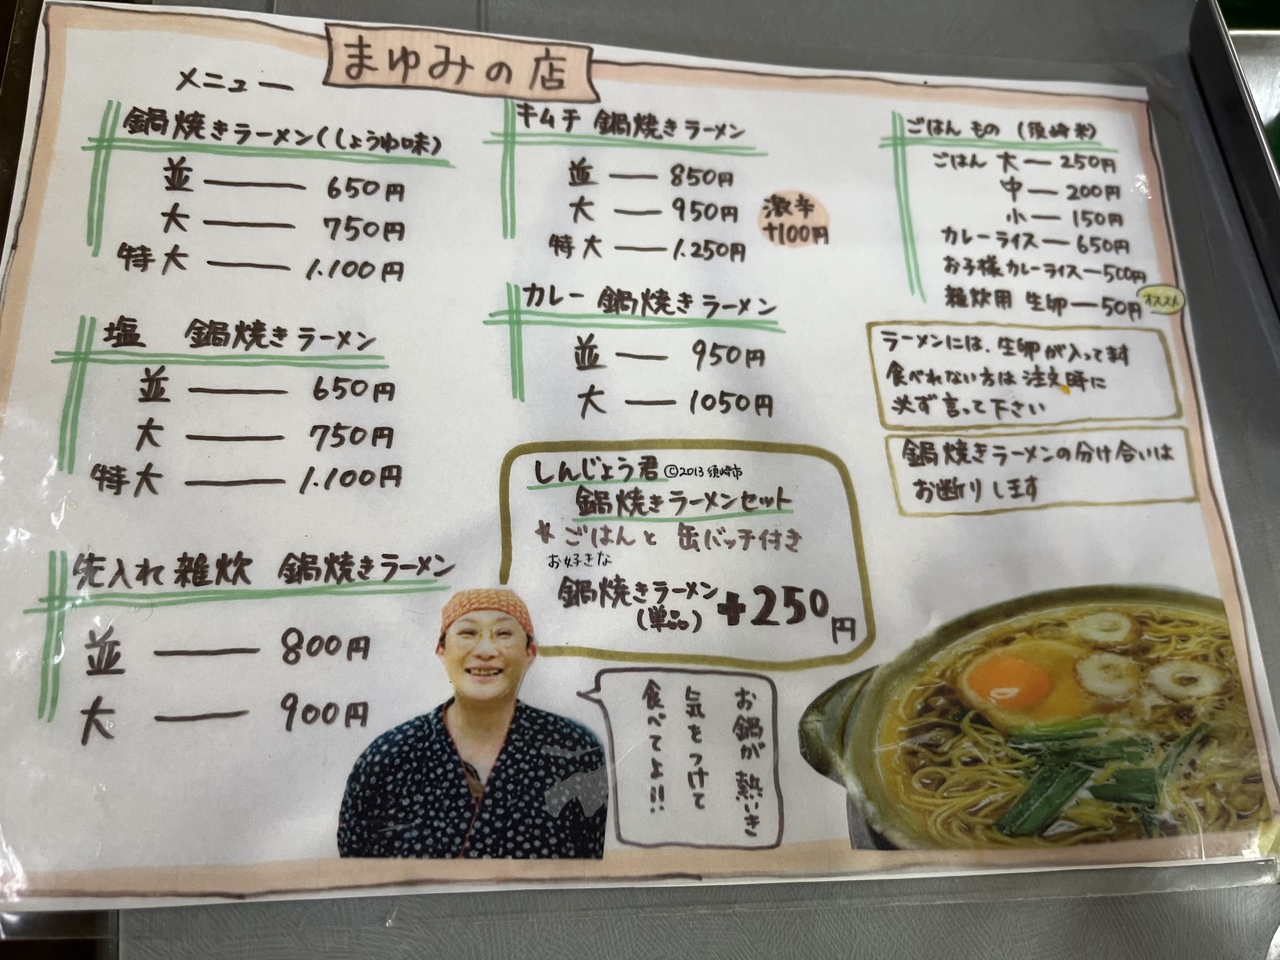 まゆみの店
メニュー
鍋焼きラーメン(しょうゆ味)
並 650円
大 750円
特大 1.100円
塩 鍋焼きラーメン
並 650円
大 750円
特大 1.100円
先入れ雑炊 鍋焼きラーメン
並 800円
大 900円
キムチ 鍋焼きラーメン
並 850円
大 950円
特大 1.250円
激辛
+100円
カレー 鍋焼きラーメン
並 950円
大 1050円
しんじょう君 ©2013 須崎市
鍋焼きラーメンセット
* ごはんと 缶バッチ付き
お好きな
鍋焼きラーメン
(単品)
+250円
お鍋が熱いき
気をつけて
食べてよ!!
ごはんもの (須崎米)
ごはん 大 250円
中 200円
小 150円
カレーライス 650円
お子様カレーライス 500円
雑炊用 生卵 50円
オススメ
ラーメンには、生卵が入ってます
食べれない方は注文時に
必ず言って下さい
鍋焼きラーメンの分け合いは
お断りします